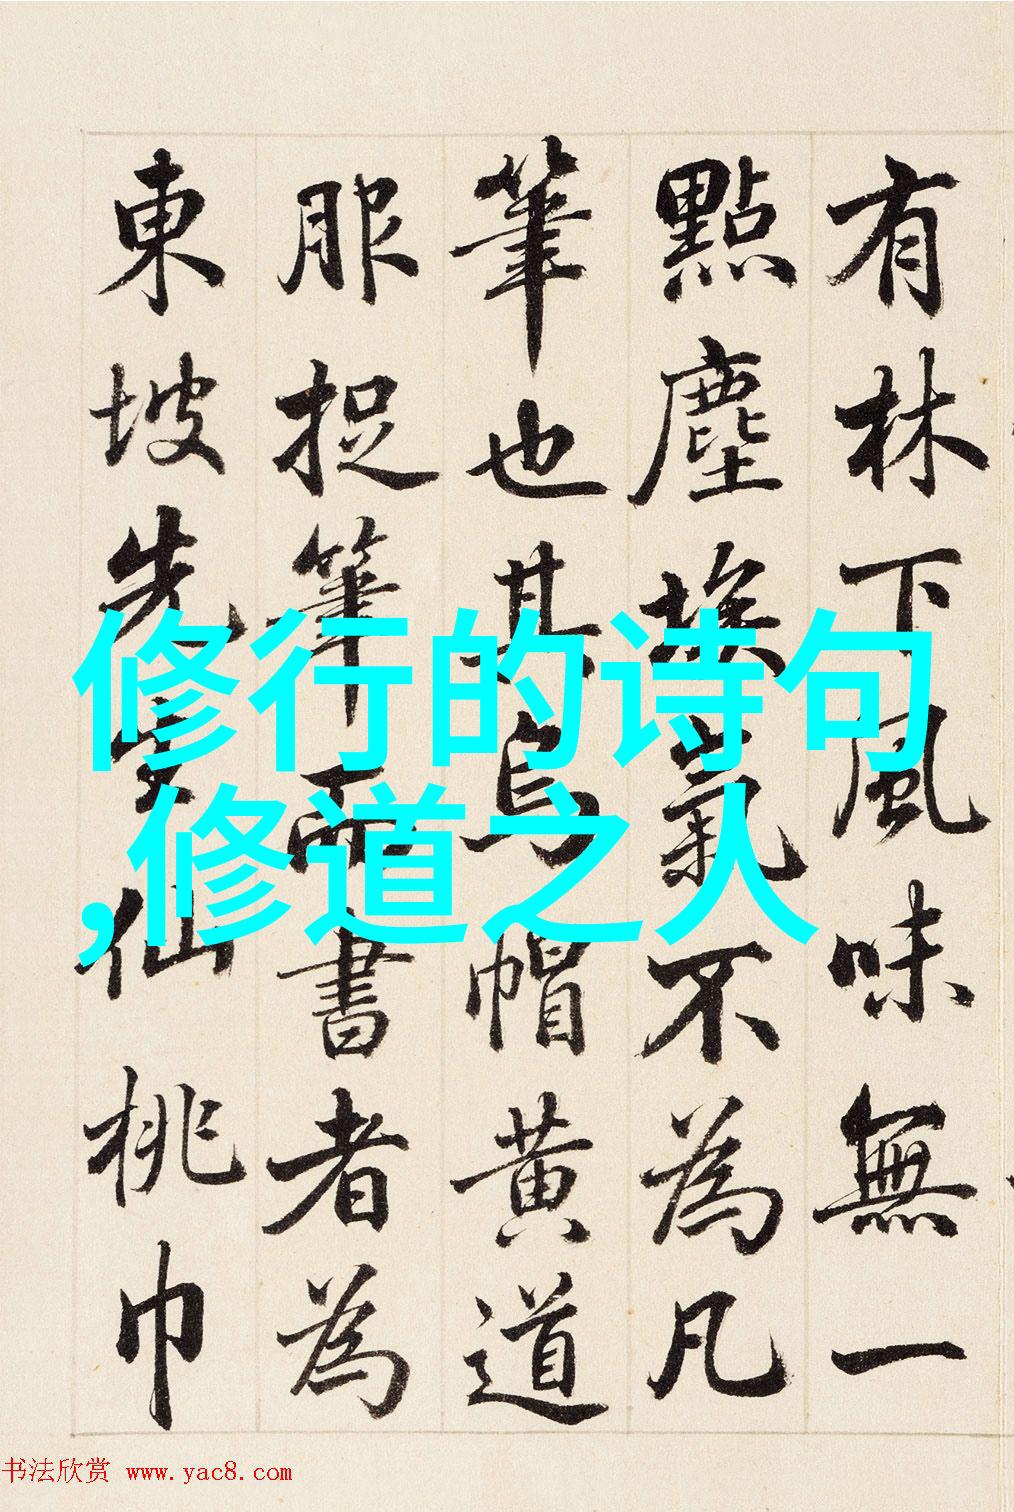 有林下風味無一
點塵埃氣不為凡
筆也其烏帽黃道
服捉筆而書者為
東坡先生仙桃巾
修行的诗句
,修道之人
书法欣赏 www.yac8.com